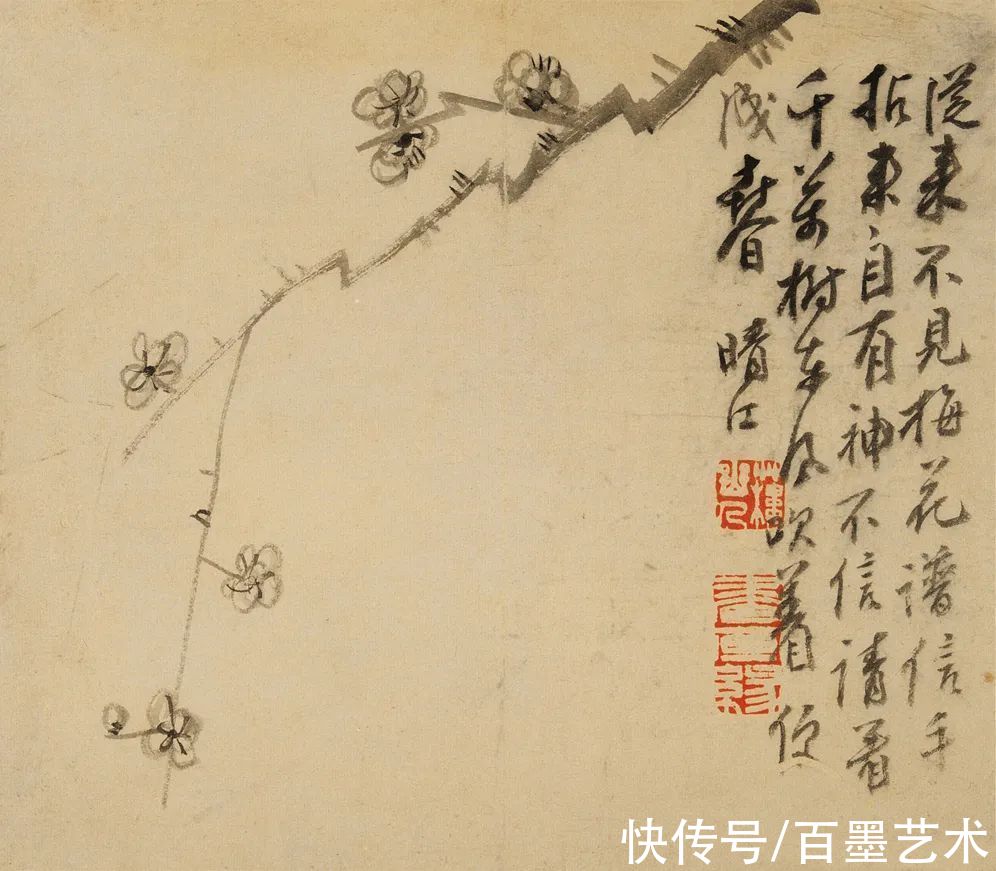 從来不見梅花譜信手
拈来自有神不信請看
千萬樹東風吹着便
成春 晴江
快传号/百墨艺术